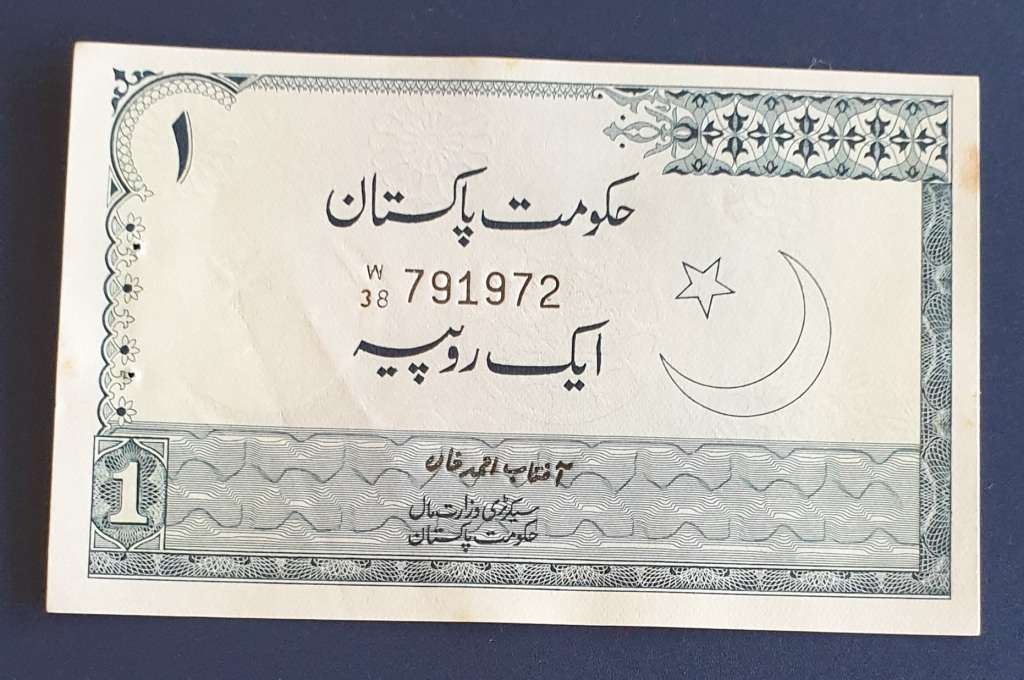 ۱
حکومت پاکستان
W
38 791972
ایک روپیہ
آفتاب احمد خاں
سیکرٹری وزارت مال
حکومت پاکستان
1